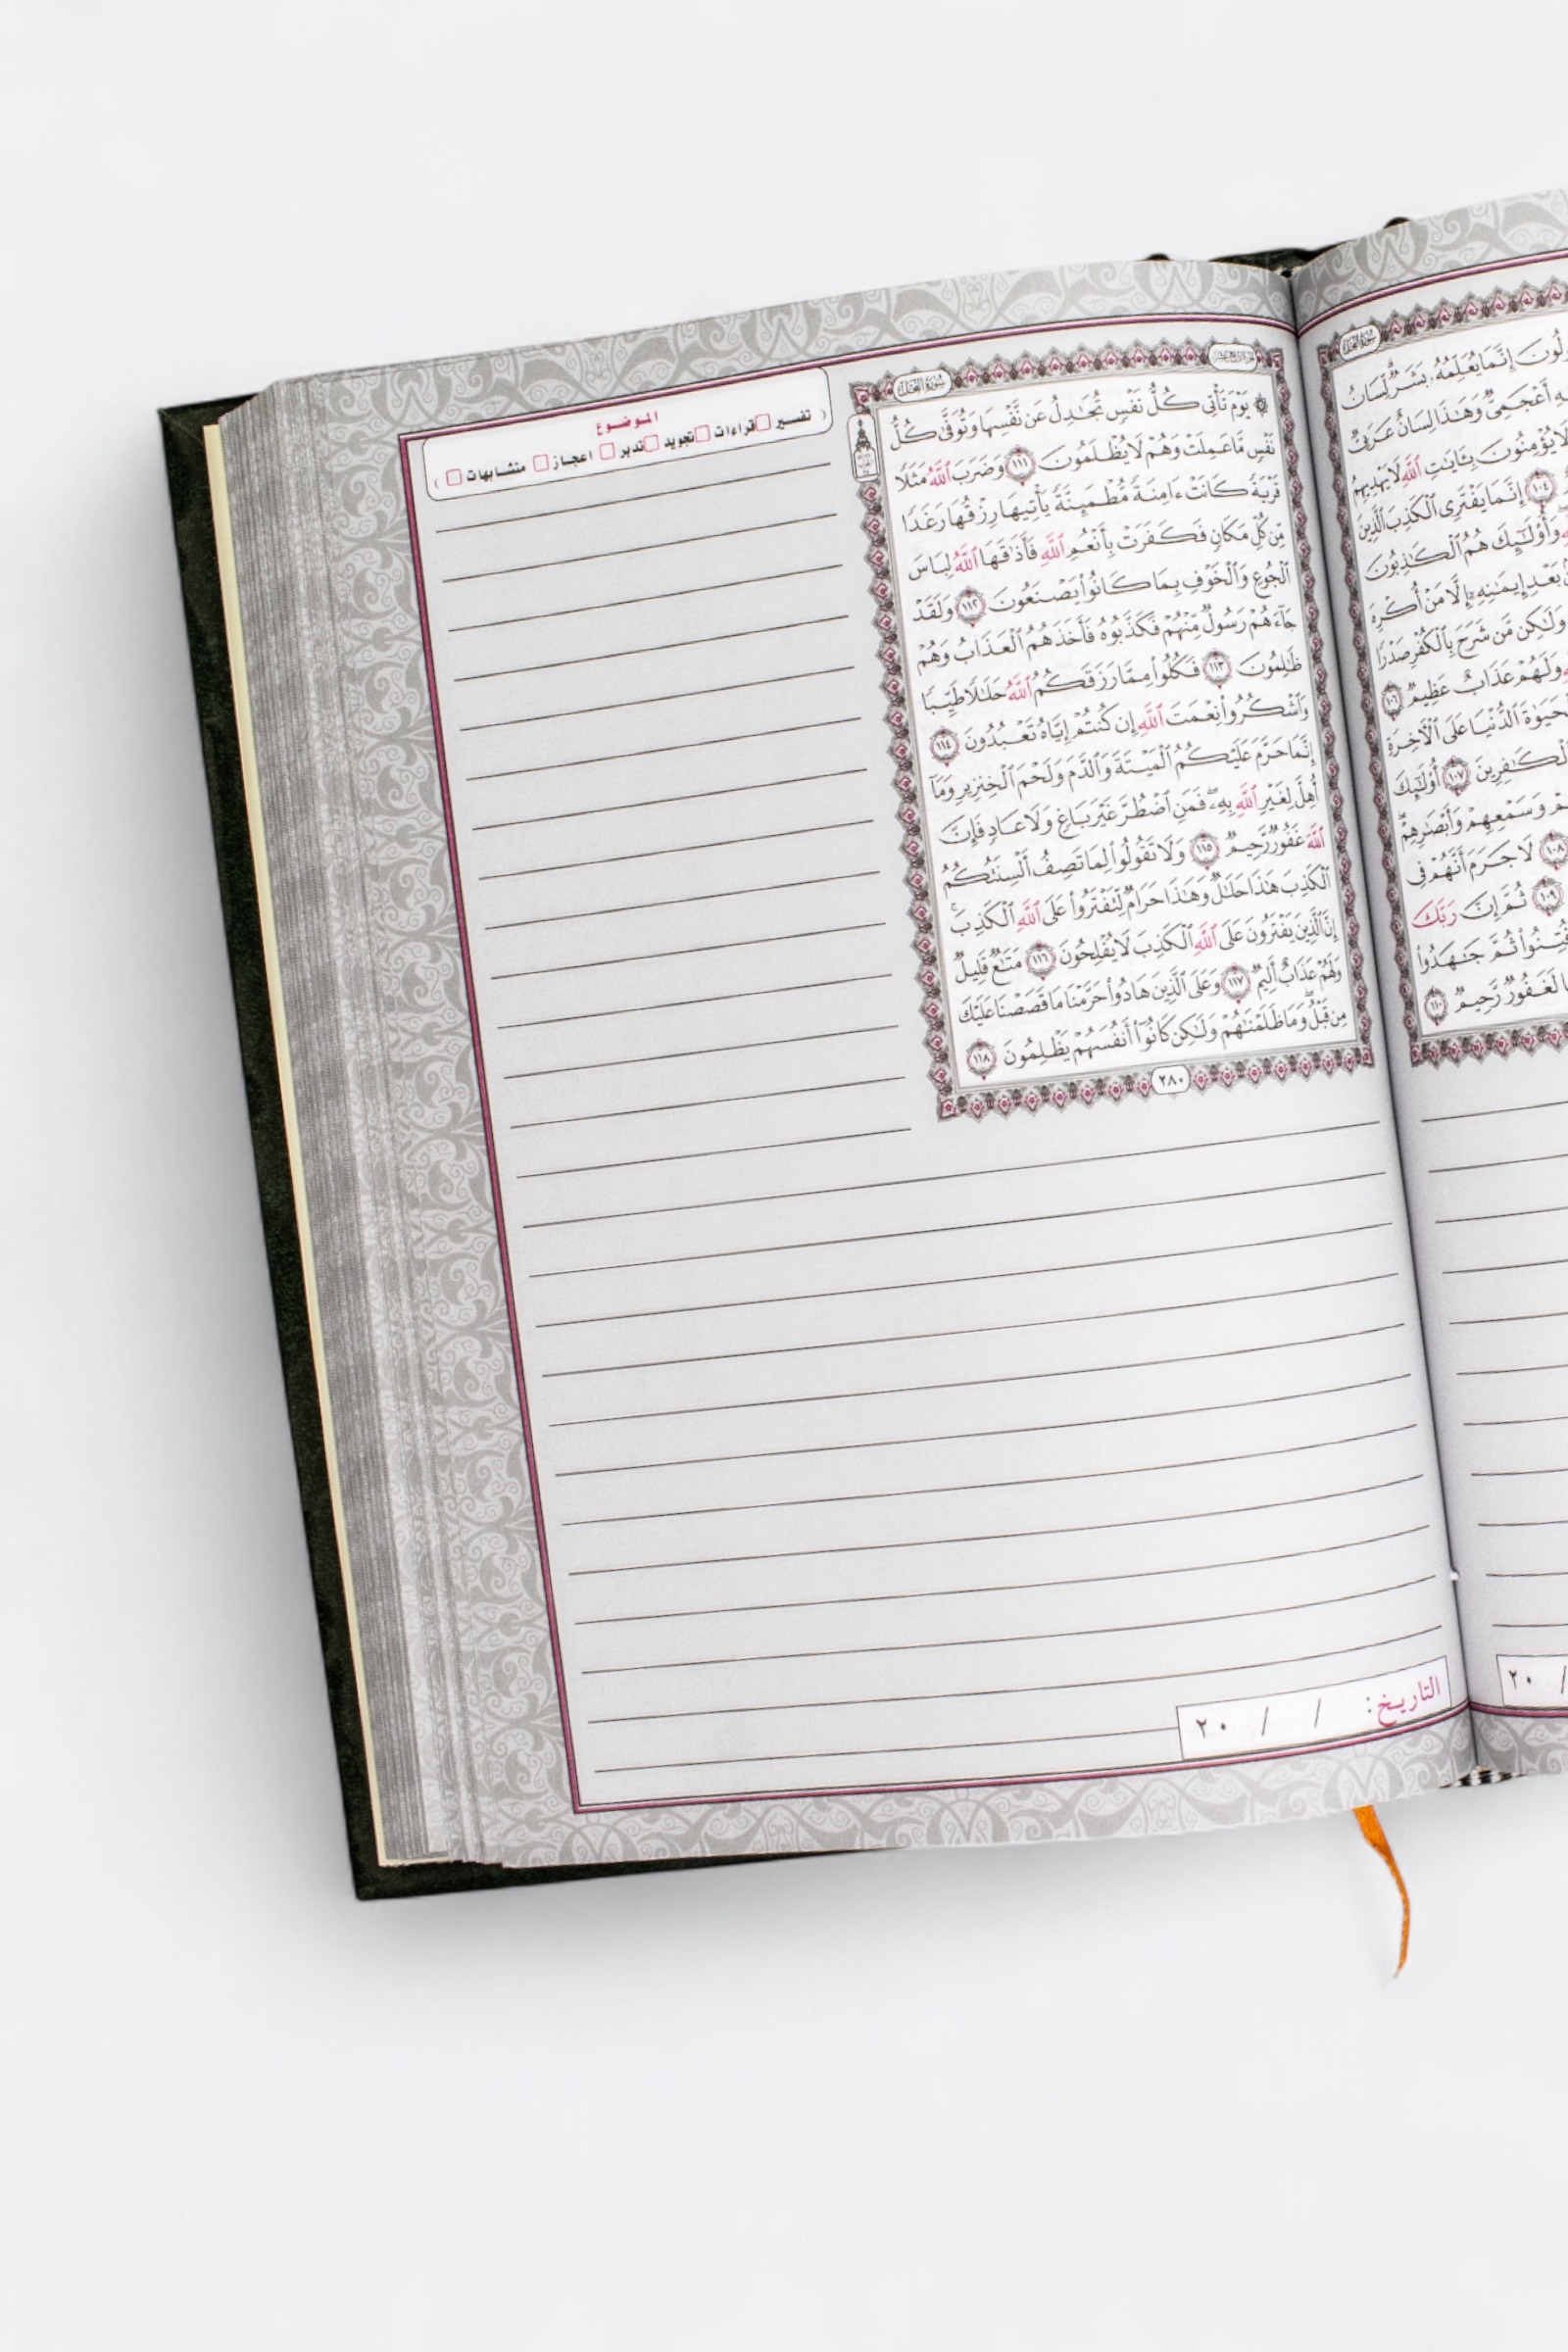 سورة النحل
لُونَ إِنَّمَا يُعَلِّمُهُۥ بَشَرٌۭ ۗ لِّسَانُ
أَعْجَمِىٌّۭ وَهَٰذَا لِسَانٌ عَرَبِىٌّۭ
لَا يُؤْمِنُونَ بِـَٔايَٰتِ ٱللَّهِ لَا يَهْدِيهِمُ
١٠٤ إِنَّمَا يَفْتَرِى ٱلْكَذِبَ ٱلَّذِينَ
وَأُو۟لَٰٓئِكَ هُمُ ٱلْكَٰذِبُونَ
بَعْدِ إِيمَٰنِهِۦٓ إِلَّا مَنْ أُكْرِهَ
وَلَٰكِن مَّن شَرَحَ بِٱلْكُفْرِ صَدْرًۭا
وَلَهُمْ عَذَابٌ عَظِيمٌۭ ١٠٦
ٱلْحَيَوٰةَ ٱلدُّنْيَا عَلَى ٱلْءَاخِرَةِ
ٱلْكَٰفِرِينَ ١٠٧ أُو۟لَٰٓئِكَ
وَسَمْعِهِمْ وَأَبْصَٰرِهِمْ ۖ
١٠٨ لَا جَرَمَ أَنَّهُمْ فِى
١٠٩ ثُمَّ إِنَّ رَبَّكَ
فُتِنُوا۟ ثُمَّ جَٰهَدُوا۟
لَغَفُورٌۭ رَّحِيمٌۭ ١١٠
٢٠ /
سورة النحل
۞ يَوْمَ تَأْتِى كُلُّ نَفْسٍۢ تُجَٰدِلُ عَن نَّفْسِهَا وَتُوَفَّىٰ كُلُّ
نَفْسٍۢ مَّا عَمِلَتْ وَهُمْ لَا يُظْلَمُونَ ١١١ وَضَرَبَ ٱللَّهُ مَثَلًۭا
قَرْيَةًۭ كَانَتْ ءَامِنَةًۭ مُّطْمَئِنَّةًۭ يَأْتِيهَا رِزْقُهَا رَغَدًۭا
مِّن كُلِّ مَكَانٍۢ فَكَفَرَتْ بِأَنْعُمِ ٱللَّهِ فَأَذَٰقَهَا ٱللَّهُ لِبَاسَ
ٱلْجُوعِ وَٱلْخَوْفِ بِمَا كَانُوا۟ يَصْنَعُونَ ١١٢ وَلَقَدْ
جَآءَهُمْ رَسُولٌۭ مِّنْهُمْ فَكَذَّبُوهُ فَأَخَذَهُمُ ٱلْعَذَابُ وَهُمْ
ظَٰلِمُونَ ١١٣ فَكُلُوا۟ مِمَّا رَزَقَكُمُ ٱللَّهُ حَلَٰلًۭا طَيِّبًۭا
وَٱشْكُرُوا۟ نِعْمَتَ ٱللَّهِ إِن كُنتُمْ إِيَّاهُ تَعْبُدُونَ ١١٤
إِنَّمَا حَرَّمَ عَلَيْكُمُ ٱلْمَيْتَةَ وَٱلدَّمَ وَلَحْمَ ٱلْخِنزِيرِ وَمَآ
أُهِلَّ لِغَيْرِ ٱللَّهِ بِهِۦ ۖ فَمَنِ ٱضْطُرَّ غَيْرَ بَاغٍۢ وَلَا عَادٍۢ فَإِنَّ
ٱللَّهَ غَفُورٌۭ رَّحِيمٌۭ ١١٥ وَلَا تَقُولُوا۟ لِمَا تَصِفُ أَلْسِنَتُكُمُ
ٱلْكَذِبَ هَٰذَا حَلَٰلٌۭ وَهَٰذَا حَرَامٌۭ لِّتَفْتَرُوا۟ عَلَى ٱللَّهِ ٱلْكَذِبَ ۚ
إِنَّ ٱلَّذِينَ يَفْتَرُونَ عَلَى ٱللَّهِ ٱلْكَذِبَ لَا يُفْلِحُونَ ١١٦ مَتَٰعٌۭ قَلِيلٌۭ
وَلَهُمْ عَذَابٌ أَلِيمٌۭ ١١٧ وَعَلَى ٱلَّذِينَ هَادُوا۟ حَرَّمْنَا مَا قَصَصْنَا عَلَيْكَ
مِن قَبْلُ ۖ وَمَا ظَلَمْنَٰهُمْ وَلَٰكِن كَانُوٓا۟ أَنفُسَهُمْ يَظْلِمُونَ ١١٨
٢٨٠
الموضوع
( تفسير قراءات تجويد تدبر اعجاز متشابهات )
التاريخ: / / ٢٠